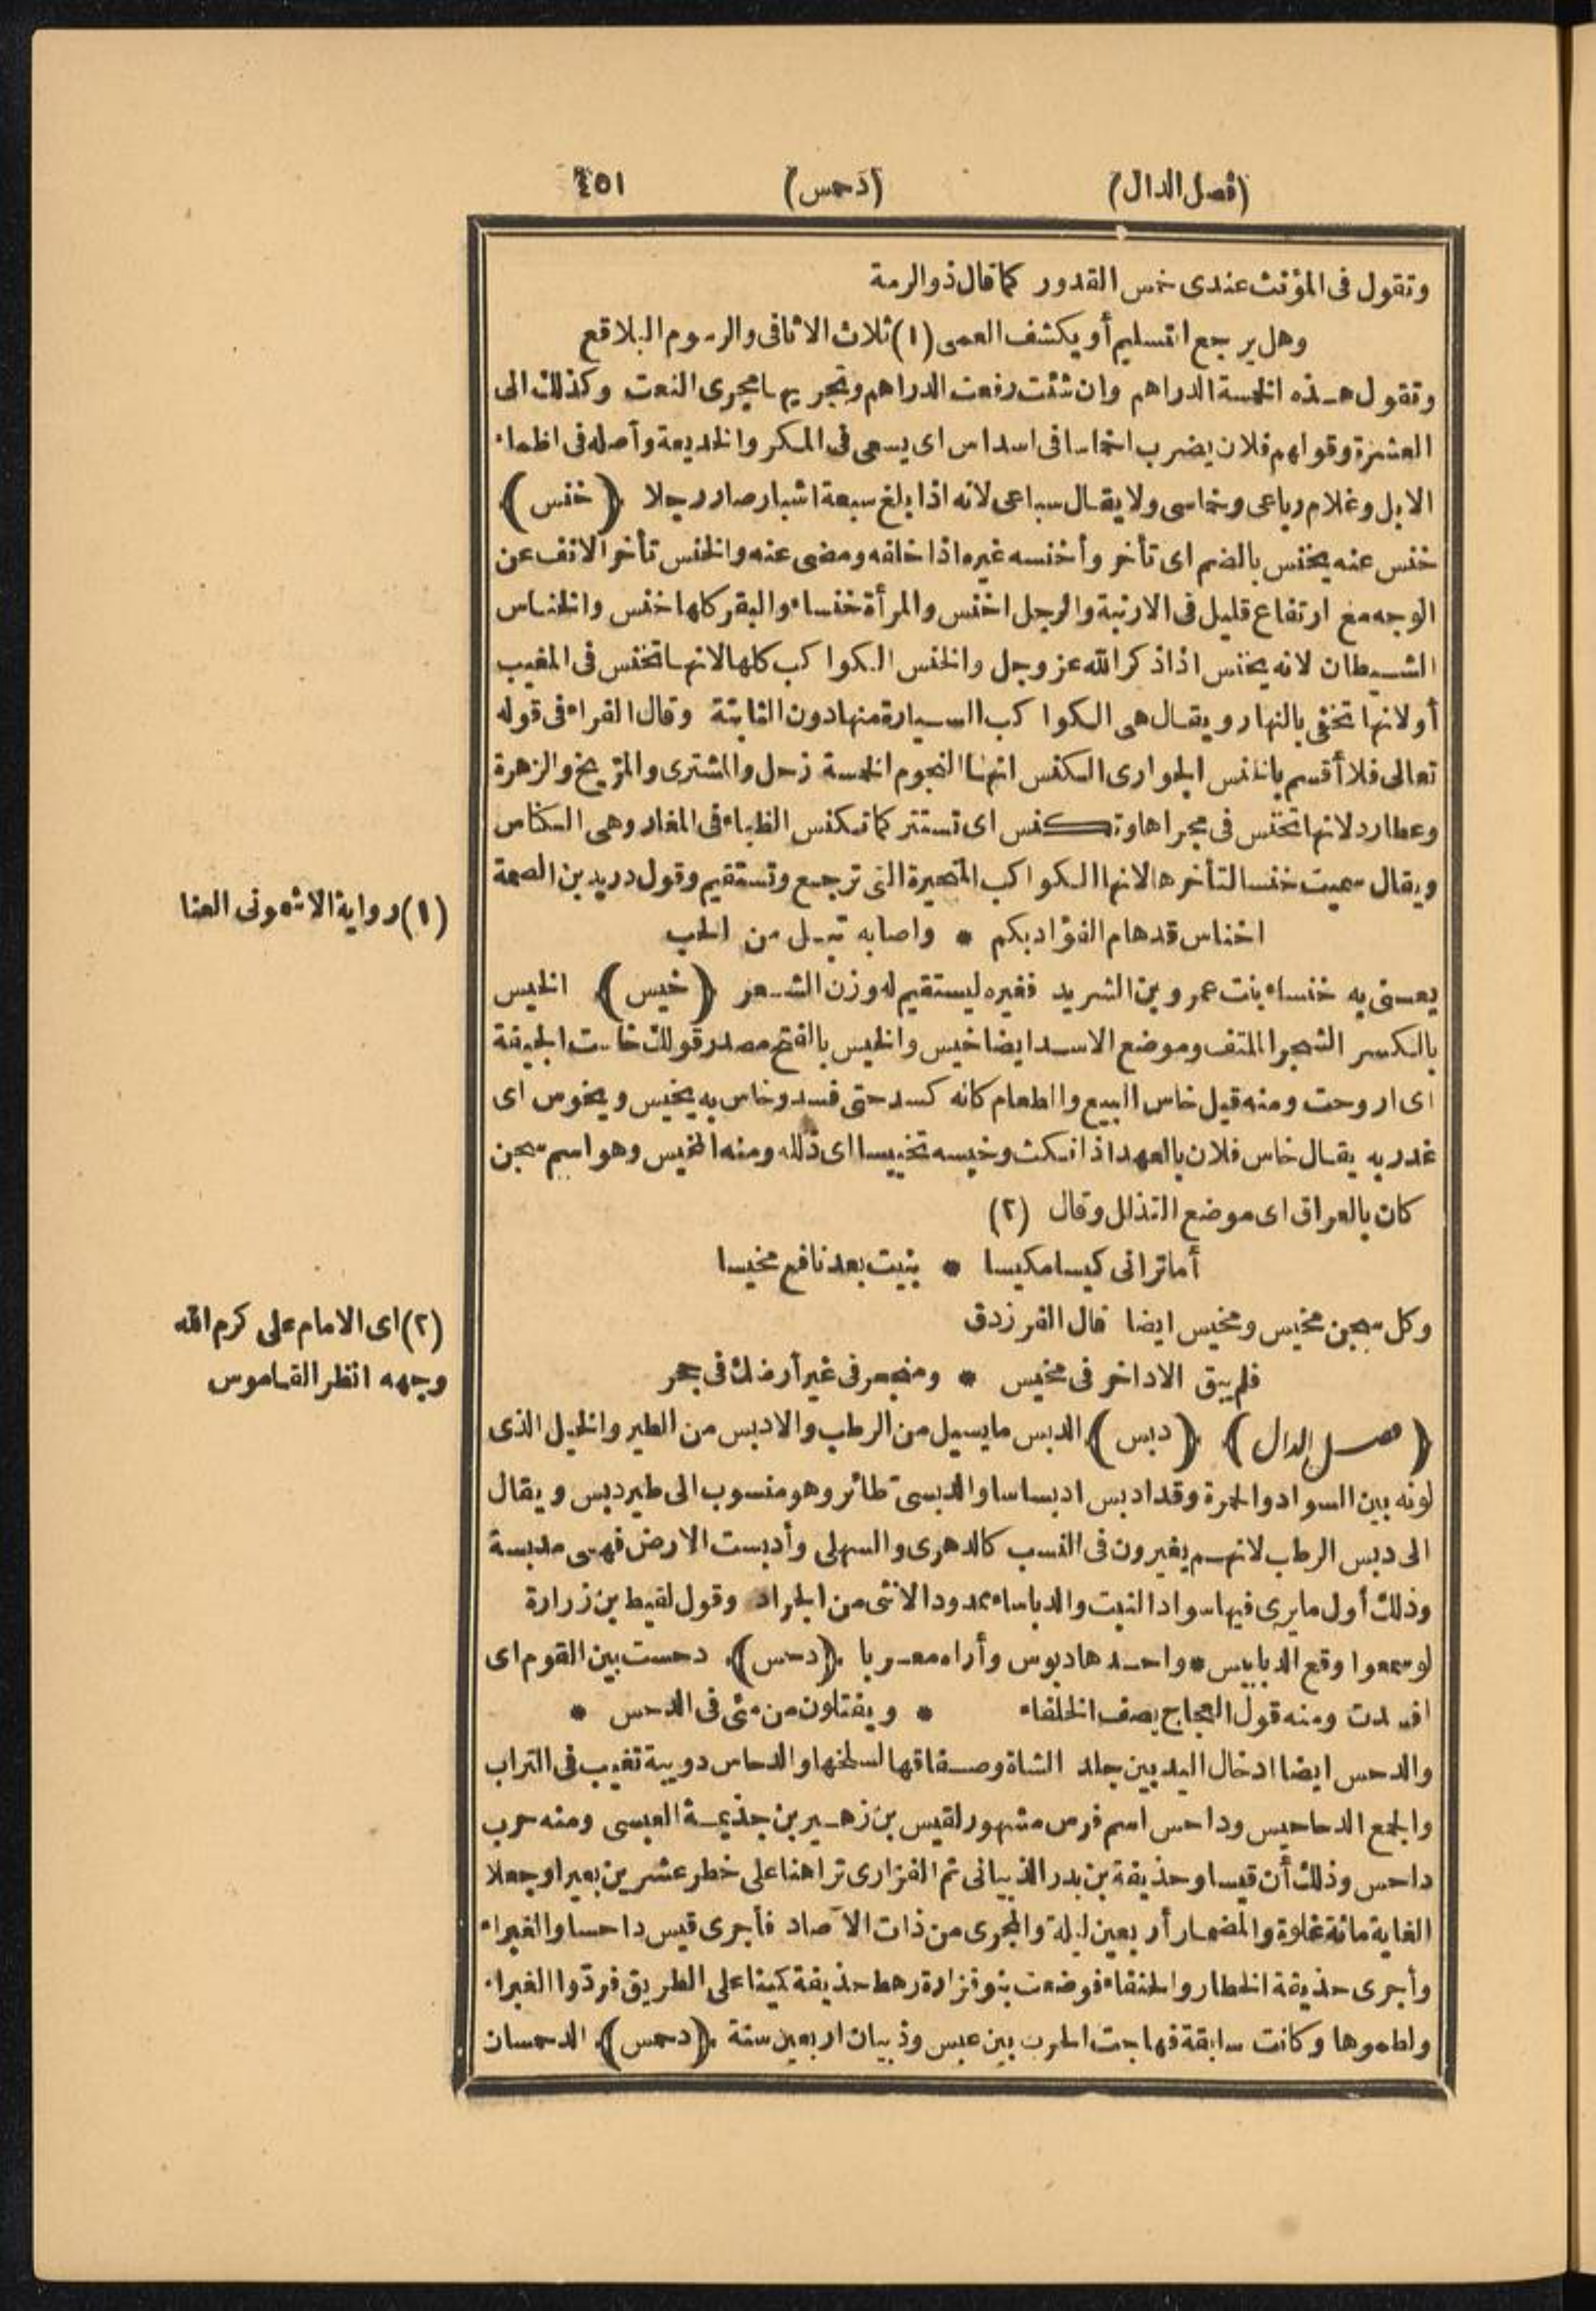 (فصل الدال)
(دحمس)
٤٥١
وتقول فى المؤنث عندى خمس القدور كما قال ذو الرمة
وهل يرجع التسليم أو يكشف العمى (١) ثلاث الاثافى والرسوم البلاقع
وتقول هذه الخمسة الدراهم وان شئت رفعت الدراهم وتجريها مجرى النعت وكذلك الى
العشرة وقولهم فلان يضرب اخماسا فى اسداس اى يسعى فى المكر والخديعة وأصله فى اظماء
الابل وغلام رباعى وخماسى ولا يقال سباعى لانه اذا بلغ سبعة اشبار صار رجلا ﴿خنس﴾
خنس عنه يخنس بالضم اى تأخر وأخنسه غيره اذا خلفه ومضى عنه والخنس تأخر الانف عن
الوجه مع ارتفاع قليل فى الارنبة والرجل اخنس والمرأة خنساء والبقر كلها خنس والخناس
الشيطان لانه يخنس اذا ذكر الله عز وجل والخنس الكواكب كلها لانها تخنس فى المغيب
أو لانها تخفى بالنهار ويقال هى الكواكب السيارة منها دون الثابتة وقال الفراء فى قوله
تعالى فلا أقسم بالخنس الجوارى الكنس انها النجوم الخمسة زحل والمشترى والمريخ والزهرة
وعطارد لانها تخنس فى مجراها وتكنس اى تستتر كما تكنس الظباء فى المغار وهى الكناس
ويقال سميت خنسا لتأخرها لانها الكواكب المتحيرة التى ترجع وتستقيم وقول دريد بن الصمة
اخناس قد هام الفؤاد بكم * واصابه تبل من الحب
يعنى به خنساء بنت عمرو بن الشريد فغيره ليستقيم له وزن الشعر ﴿خيس﴾ الخيس
بالكسر الشجر الملتف وموضع الاسد ايضا خيس والخيس بالفتح مصدر قولك خاست الجيفة
اى اروحت ومنه قيل خاس البيع والطعام كانه كسد حتى فسد وخاس به يخيس ويخوس اى
غدر به يقال خاس فلان بالعهد اذا نكث وخيسه تخييسا اى ذلله ومنه المخيس وهو اسم سجن
كان بالعراق اى موضع التذلل وقال (٢)
أما ترانى كيسا مكيسا * بنيت بعد نافع مخيسا
وكل سجن مخيس ومخيس ايضا قال الفرزدق
فلم يبق الا داخر فى مخيس * ومنجحر فى غير أرضك فى جحر
﴿فصل الدال﴾ ﴿دبس﴾ الدبس ما يسيل من الرطب والادبس من الطير والخيل الذى
لونه بين السواد والحمرة وقد ادبس ادبساسا والدبسى طائر وهو منسوب الى طير دبس ويقال
الى دبس الرطب لانهم يغيرون فى النسب كالدهرى والسهلى وأدبست الارض فهى مدبسة
وذلك أول ما يرى فيها سواد النبت والدباساء ممدود الانثى من الجراد وقول لقيط بن زرارة
لو سمعوا وقع الدبابيس * واحدها دبوس وأراه معربا ﴿دحس﴾ دحست بين القوم اى
افسدت ومنه قول العجاج يصف الخلفاء * ويفتلون من مئى فى الدحس *
والدحس ايضا ادخال اليد بين جلد الشاة وصفاقها لسلخها والدحاس دويبة تغيب فى التراب
والجمع الدحاحيس وداحس اسم فرس مشهور لقيس بن زهير بن جذيمة العبسى ومنه حرب
داحس وذلك أن قيسا وحذيفة بن بدر الذبيانى ثم الفزارى تراهنا على خطر عشرين بعيرا وجعلا
الغاية مائة غلوة والمضمار أربعين ليلة والمجرى من ذات الآصاد فأجرى قيس داحسا والغبراء
وأجرى حذيفة الخطار والحنفاء فوضعت بنو فزارة رهط حذيفة كمينا على الطريق فردّوا الغبراء
ولطموها وكانت سابقة فهاجت الحرب بين عبس وذبيان اربعين سنة ﴿دحمس﴾ الدحمسان
(١) رواية الاشمونى العنا
(٢) اى الامام على كرم الله
وجهه انظر القاموس